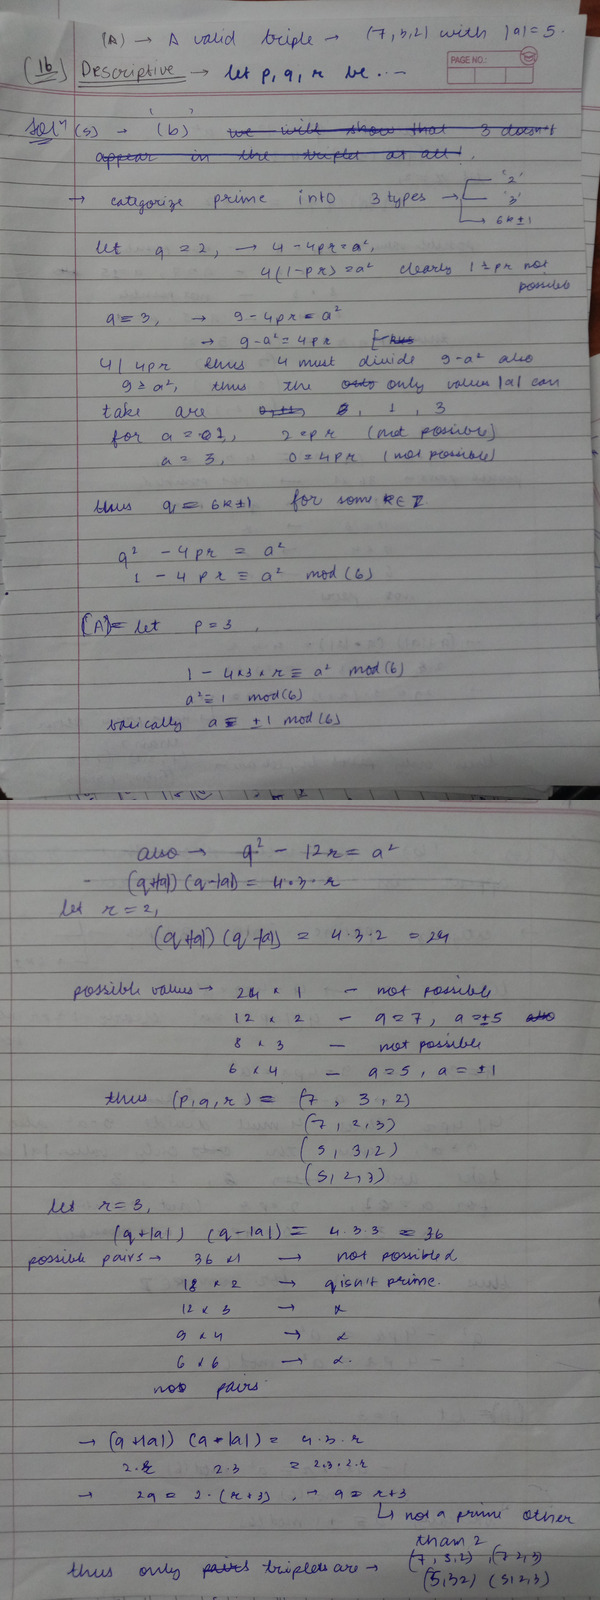 (A) → A valid triple → (7,3,2) with |a| = 5.
(16) Descriptive → let p, q, r be ...
PAGE NO.:
Solⁿ (s) → '(b)' we will show that 3 doesn't
appear in the triplet at all.
→ categorize prime into 3 types → '2'
'3'
6k±1
let q = 2, → 4 - 4pr = a²,
4(1-pr) = a² clearly 1≥pr not
possible
q = 3, → 9 - 4pr = a²
→ 9 - a² = 4pr
4 | 4pr thus 4 must divide 9-a² also
9≥a², thus the only values |a| can
take are 1, 3
for a = 1, 2 = pr (not possible)
a = 3, 0 = 4pr (not possible)
thus q = 6k±1 for some k∈Z
q² - 4pr = a²
1 - 4pr ≡ a² mod(6)
(A) = let p = 3,
1 - 4×3×r ≡ a² mod(6)
a² ≡ 1 mod(6)
basically a ≡ ±1 mod(6)
also → q² - 12r = a²
(q+|a|) (q-|a|) = 4·3·r
let r = 2,
(q+|a|) (q-|a|) = 4·3·2 = 24
possible values → 24 × 1 - not possible
12 × 2 - q = 7, a = ±5
8 × 3 - not possible
6 × 4 - q = 5, a = ±1
thus (p,q,r) = (7, 3, 2)
(7, 2, 3)
(5, 3, 2)
(5, 2, 3)
let r = 3,
(q+|a|) (q-|a|) = 4·3·3 = 36
possible pairs → 36 × 1 → not possible
18 × 2 → q isn't prime.
12 × 3 → x
9 × 4 → x
6 × 6 → x.
not pairs
→ (q+|a|) (q-|a|) = 4·3·r
2·r 2·3 = 2·3·2·r
→ 2q = 2·(r+3), → q = r+3
↳ not a prime other
than 2
thus only pairs triplets are → (7,3,2), (7,2,3)
(5,3,2) (5,2,3)